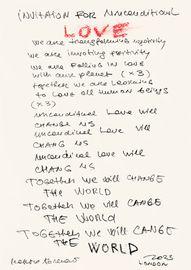 INVITATION FOR UNCONDITIONAL
LOVE
we are transforming negativity
we are inviting positivity
we are falling in love
with our planet (x3)
Together we are learning
to love all human beings
(x3)
unconditional love will
change us
unconditional love will
chang us
unconditional love will
change us
Together we will CHANGE
THE WORLD
Together we will CANGE
THE WORLD
Together we will CANGE
THE WORLD
2023
LONDON